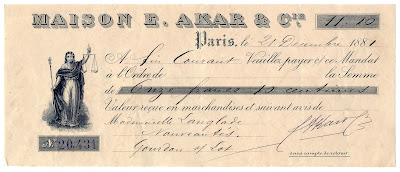 MAISON E. AKAR & Cie 11.10
Paris, le 21 Décembre 1881
A fin Courant Veuillez payer p. ce Mandat
à l'Ordre de la Somme
de Onze francs 10 centimes
Valeur reçue en marchandises et suivant avis de
Mademoiselle Langlade
Nouveautés
Gourdon s/ Lot
No 20,431